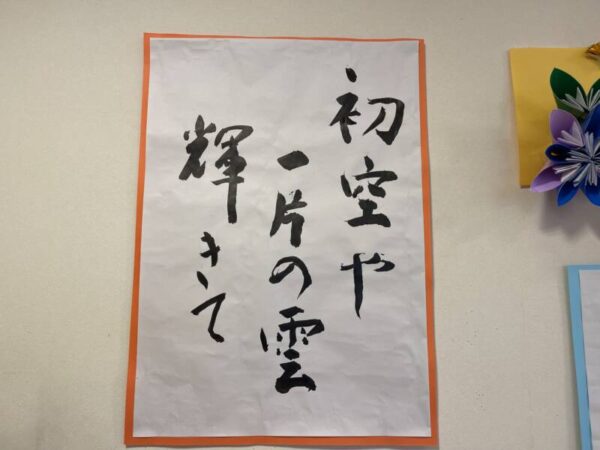 初空や
一片の雲
輝きて